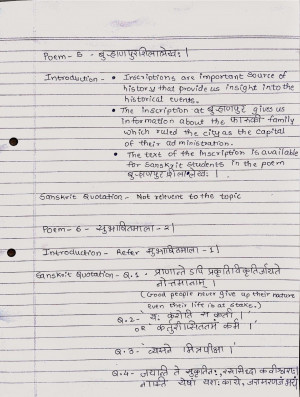 Poem - 5 - बुऱ्हाणपुरशिलालेखः |
Introduction - • Inscriptions are important source of
history that provide us insight into the
historical events.
• The inscription at बुऱ्हाणपुर gives us
information about the फारुकी family
which ruled the city as the capital
of their administration.
• The text of the inscription is available
for Sanskrit students in the poem
बुऱ्हाणपुरशिलालेखः |
Sanskrit Quotation - Not relevent to the topic
Poem - 6 - सुभाषितमाला - २|
Introduction - Refer सुभाषितमाला - १|
Sanskrit Quotation - Q.1 - प्राणान्तेऽपि प्रकृतिविकृतिर्जायते
नोत्तमानाम् |
(Good people never give up their nature
even their life is at stake.)
Q.2 - 'यः करोति स कर्ता |'
OR कर्तुरीप्सिततमं कर्म |'
Q.3 - 'व्यसने मित्रपरीक्षा |'
Q.4 - जयन्ति ते सुकृतिनः, रससिद्धाः कवीश्वराः
नास्ति येषां यशः काये, जरामरणजं भयं